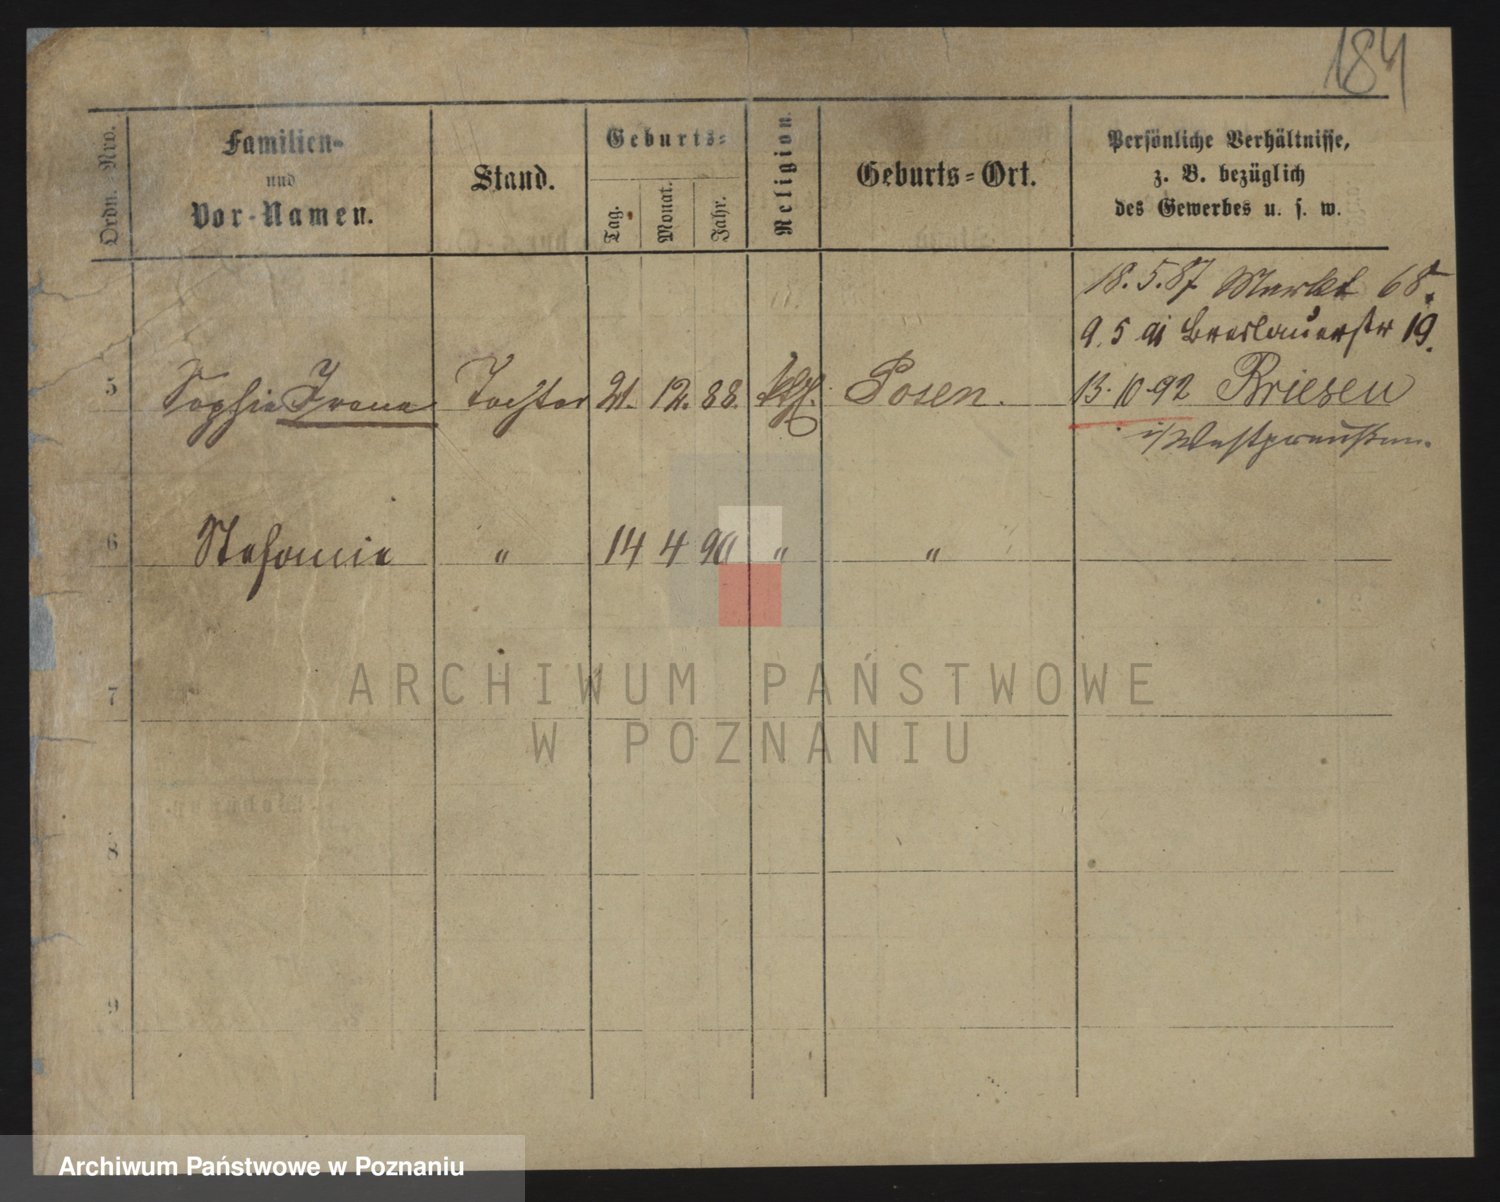 184
Ordn. Nro.
Familien-
und
Vor-Namen.
Stand.
Geburts-
Tag.
Monat.
Jahr.
Religion
Geburts-Ort.
Persönliche Verhältnisse,
z. B. bezüglich
des Gewerbes u. s. w.
18. 5. 87 Markt 68.
9. 5 91 Breslauerstr 19.
5 Sophie Irena Tochter 21. 12. 88. kth. Posen. 13. 10. 92 Briesen
i/Westpreußen.
6 Stefanie " 14 4 90 " "
7
8
9
ARCHIWUM PAŃSTWOWE
W POZNANIU
Archiwum Państwowe w Poznaniu